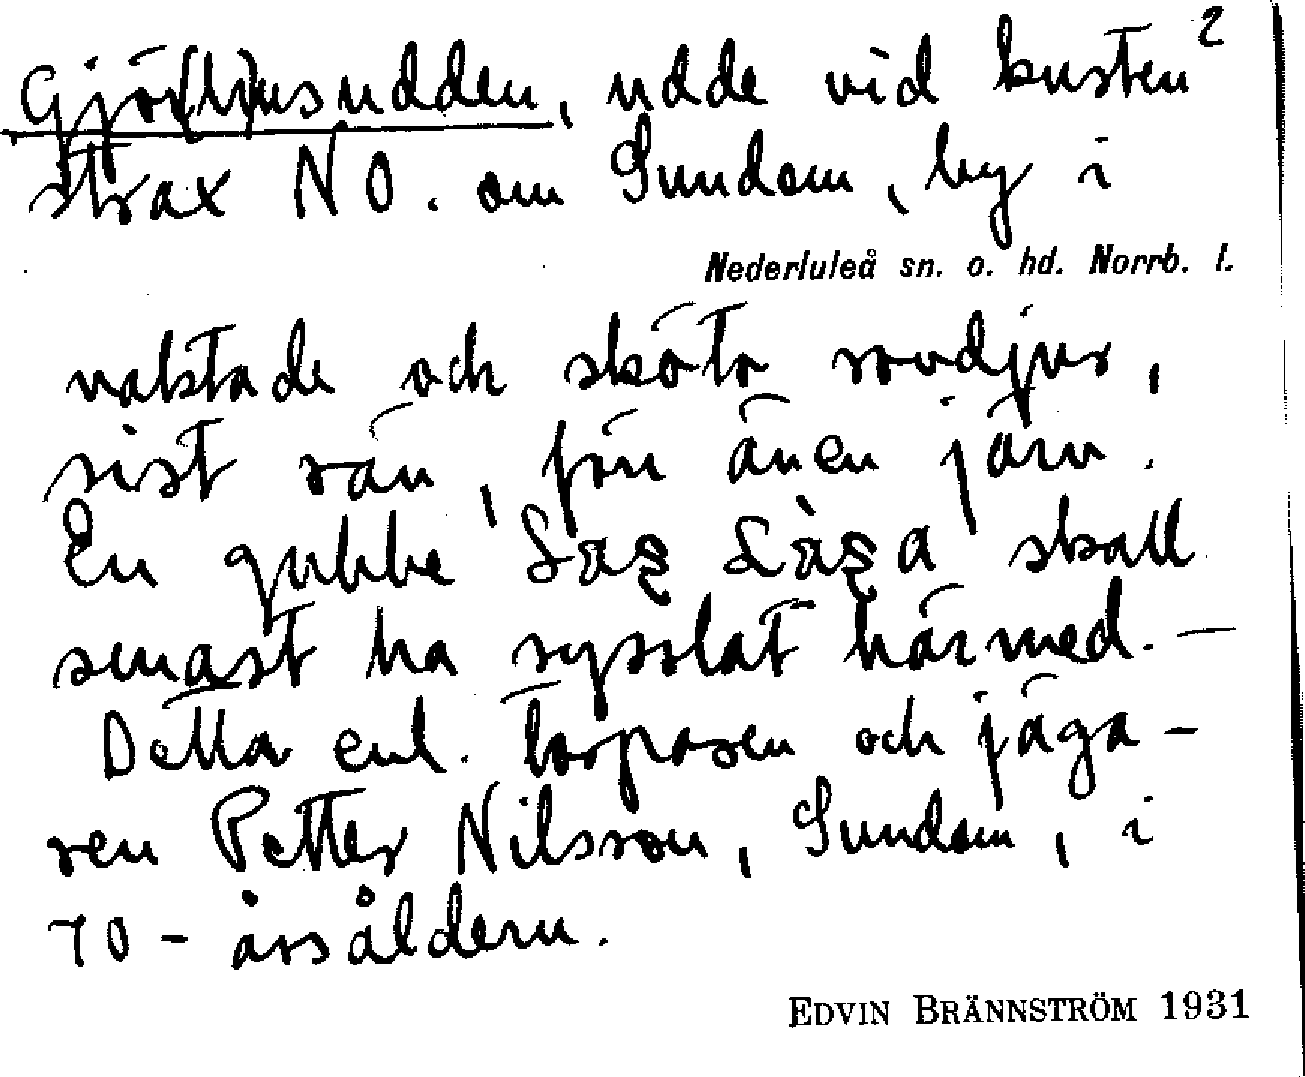 Gjör(h)usudden, udde vid kusten 2
strax NO. om Sundom, by i
Nederluleå sn. o. hd. Norrb. l.
vaktade och sköto rovdjur,
sist räv, förr även järv.
En gubbe skall
senast ha sysslat härmed. —
Detta enl. torparen och jäga-
ren Petter Nilsson, Sundom, i
70-årsåldern.
EDVIN BRÄNNSTRÖM 1931